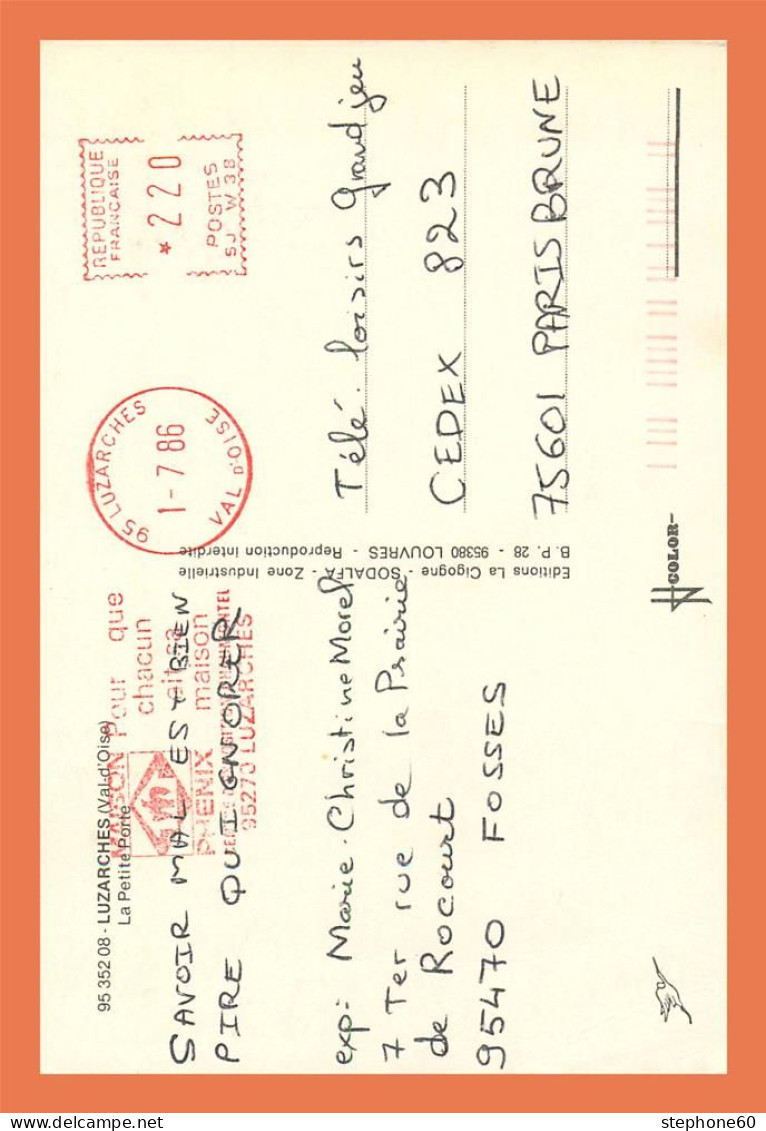 95 352 08 - LUZARCHES (Val-d'Oise)
La Petite Porte
MAISON
PHENIX
Pour que
chacun
ait sa
maison
95270 LUZARCHES
95 LUZARCHES
1-7 86
VAL D'OISE
REPUBLIQUE
FRANCAISE
* 220
POSTES
SJ W 38
SAVOIR MAL EST BIEN
PIRE QU'IGNORER
exp: Marie-Christine Morel
7 Ter rue de la Prairie
de Rocourt
95470 FOSSES
Editions La Cigogne - SODALFA - Zone Industrielle
B. P. 28 - 95380 LOUVRES - Reproduction interdite
Télé. loisirs Grand jeu
CEDEX 823
75601 PARIS BRUNE
COLOR
stephone60